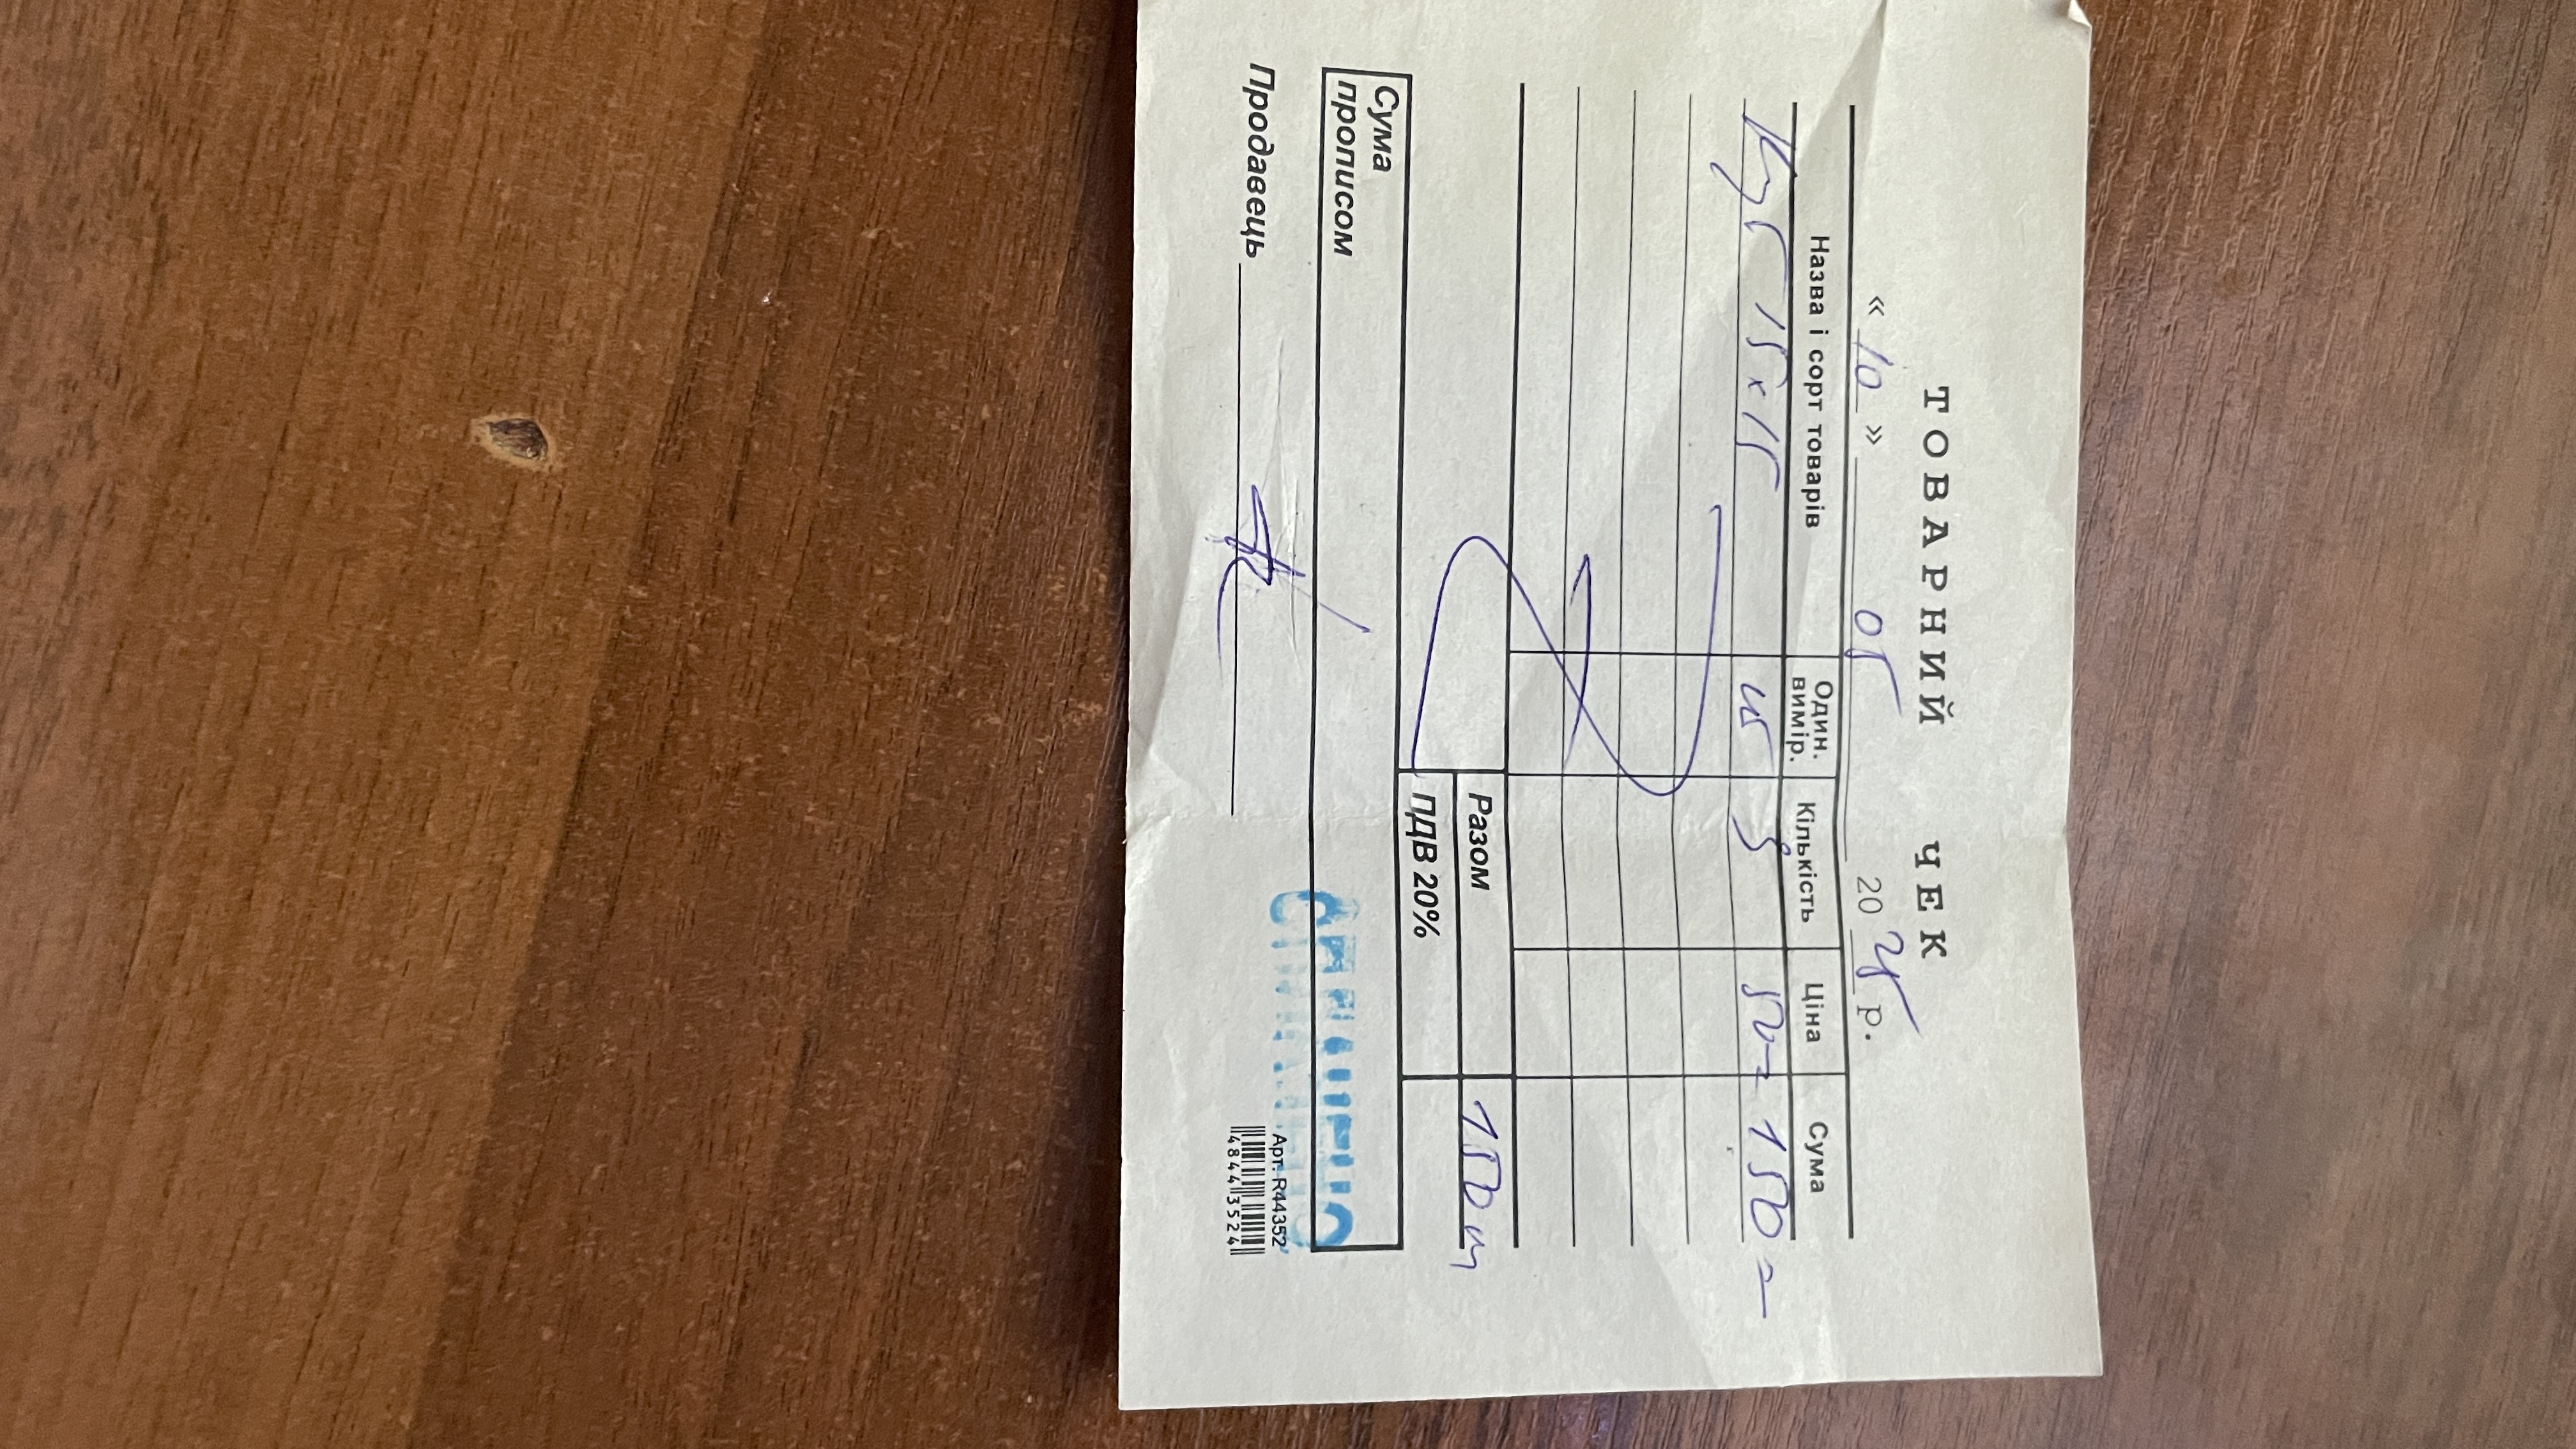 ТОВАРНИЙ ЧЕК
« 10 » 05 20 25 р.
Назва і сорт товарів Один. вимір. Кількість Ціна Сума
Куб 15х15 шт 3 50= 150=
Разом 150
ПДВ 20%
Сума
прописом
СПЛАЧЕНО
Продавець
Арт. R44352
48443524